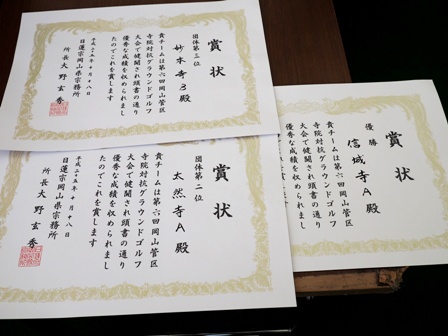 賞状
団体第三位
妙本寺B殿
貴チームは第六回岡山管区
寺院対抗グラウンドゴルフ
大会で健闘され頭書の通り
優秀な成績を収められまし
たのでこれを賞します
平成二十五年十月十八日
日蓮宗岡山県宗務所
所長大野玄秀
賞状
優勝
信城寺A殿
貴チームは第六回岡山管区
寺院対抗グラウンドゴルフ
大会で健闘され頭書の通り
優秀な成績を収められまし
たのでこれを賞します
賞状
団体第二位
太然寺A殿
貴チームは第六回岡山管区
寺院対抗グラウンドゴルフ
大会で健闘され頭書の通り
優秀な成績を収められまし
たのでこれを賞します
平成二十五年十月十八日
日蓮宗岡山県宗務所
所長大野玄秀